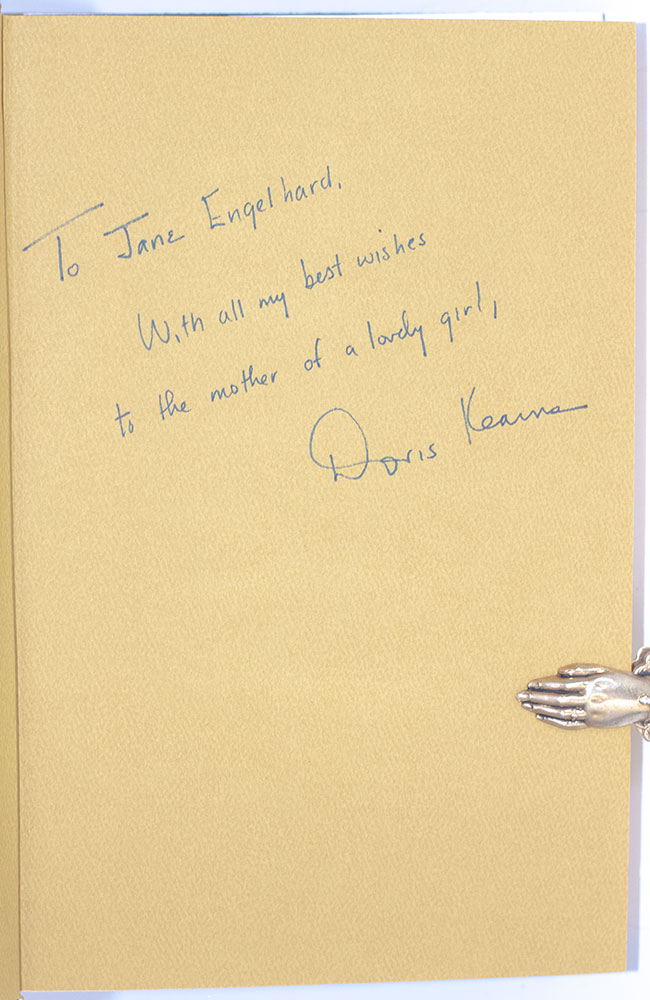 To Jane Engelhard.
With all my best wishes
to the mother of a lovely girl,
Doris Kearns